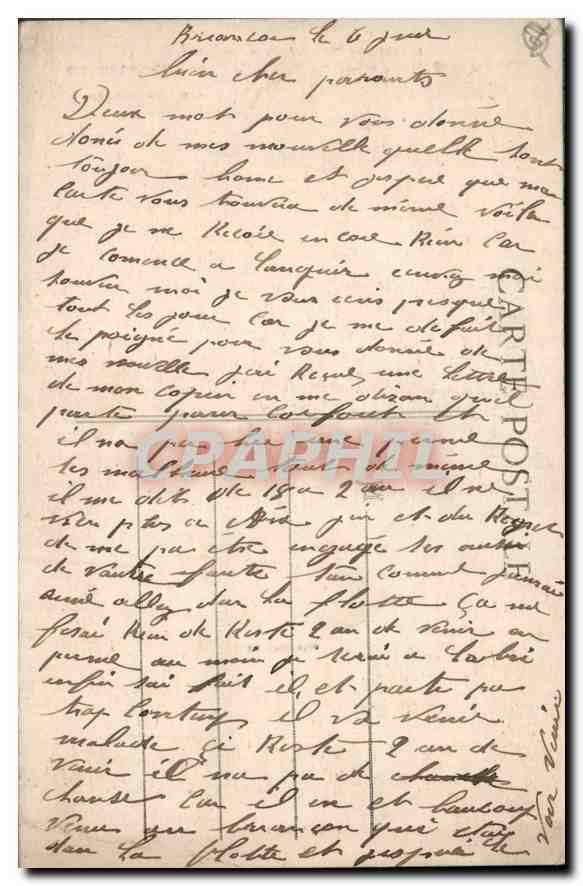 Briancon le 6 juin
bien cher parants
Deux mot pour vous donné
doné de mes nouvelle quelle sont
toujour bonne et jespere que ma
carte vous trouvera de même voila
que je ne Recoie encore Rien Car
je comence a languir
moi je vous ecris presque
tout les jour Car je me defait
le poigné pour vous donné de
mes nouvelle jai Reçue une lettre
de mon copin en me disan quil
parte pour et
il na pas une
les de même
il me dits de 2 an il ne
vien plus a et du Regret
de me pa être engagé ses
de vautre faute comme jamai
aimé allez dan la flotte Ça me
fesai Rien de Resté 2 an de venir en
perme au moin je serai a labri
enfin sai fait il et parte pa
trop contents il va venir
malade si Reste 2 an de
venir il na pa de
chanse Car il en et baucoup
venu au briançon qui etai
dan la flotte et jespere le
Voir Venir
CARTE POSTALE
CPAPHIL